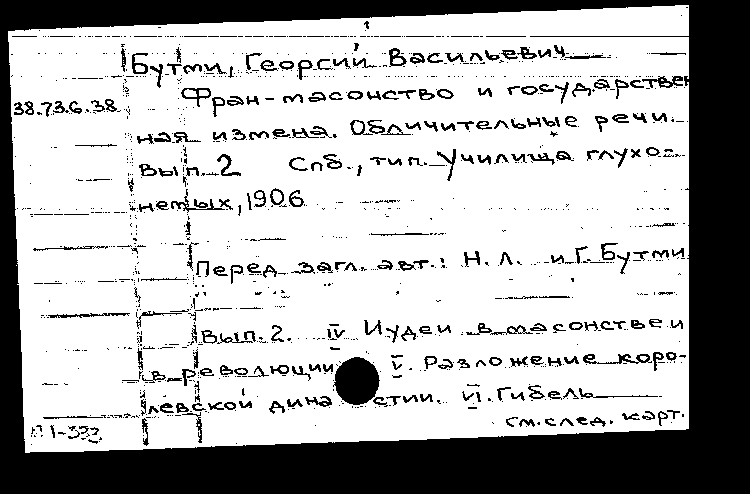 Бутми, Георгий Васильевич
38.73.6.38
Фран-масонство и государствен
ная измена. Обличительные речи.
Вып. 2 Спб., тип. Училища глухо-
немых, 1906
Перед загл. авт.: Н. Л. и Г. Бутми
Вып. 2. IV Иудеи в масонстве и
в революции V. Разложение коро-
левской династии. VI. Гибель
см. след. карт.
П 1-333